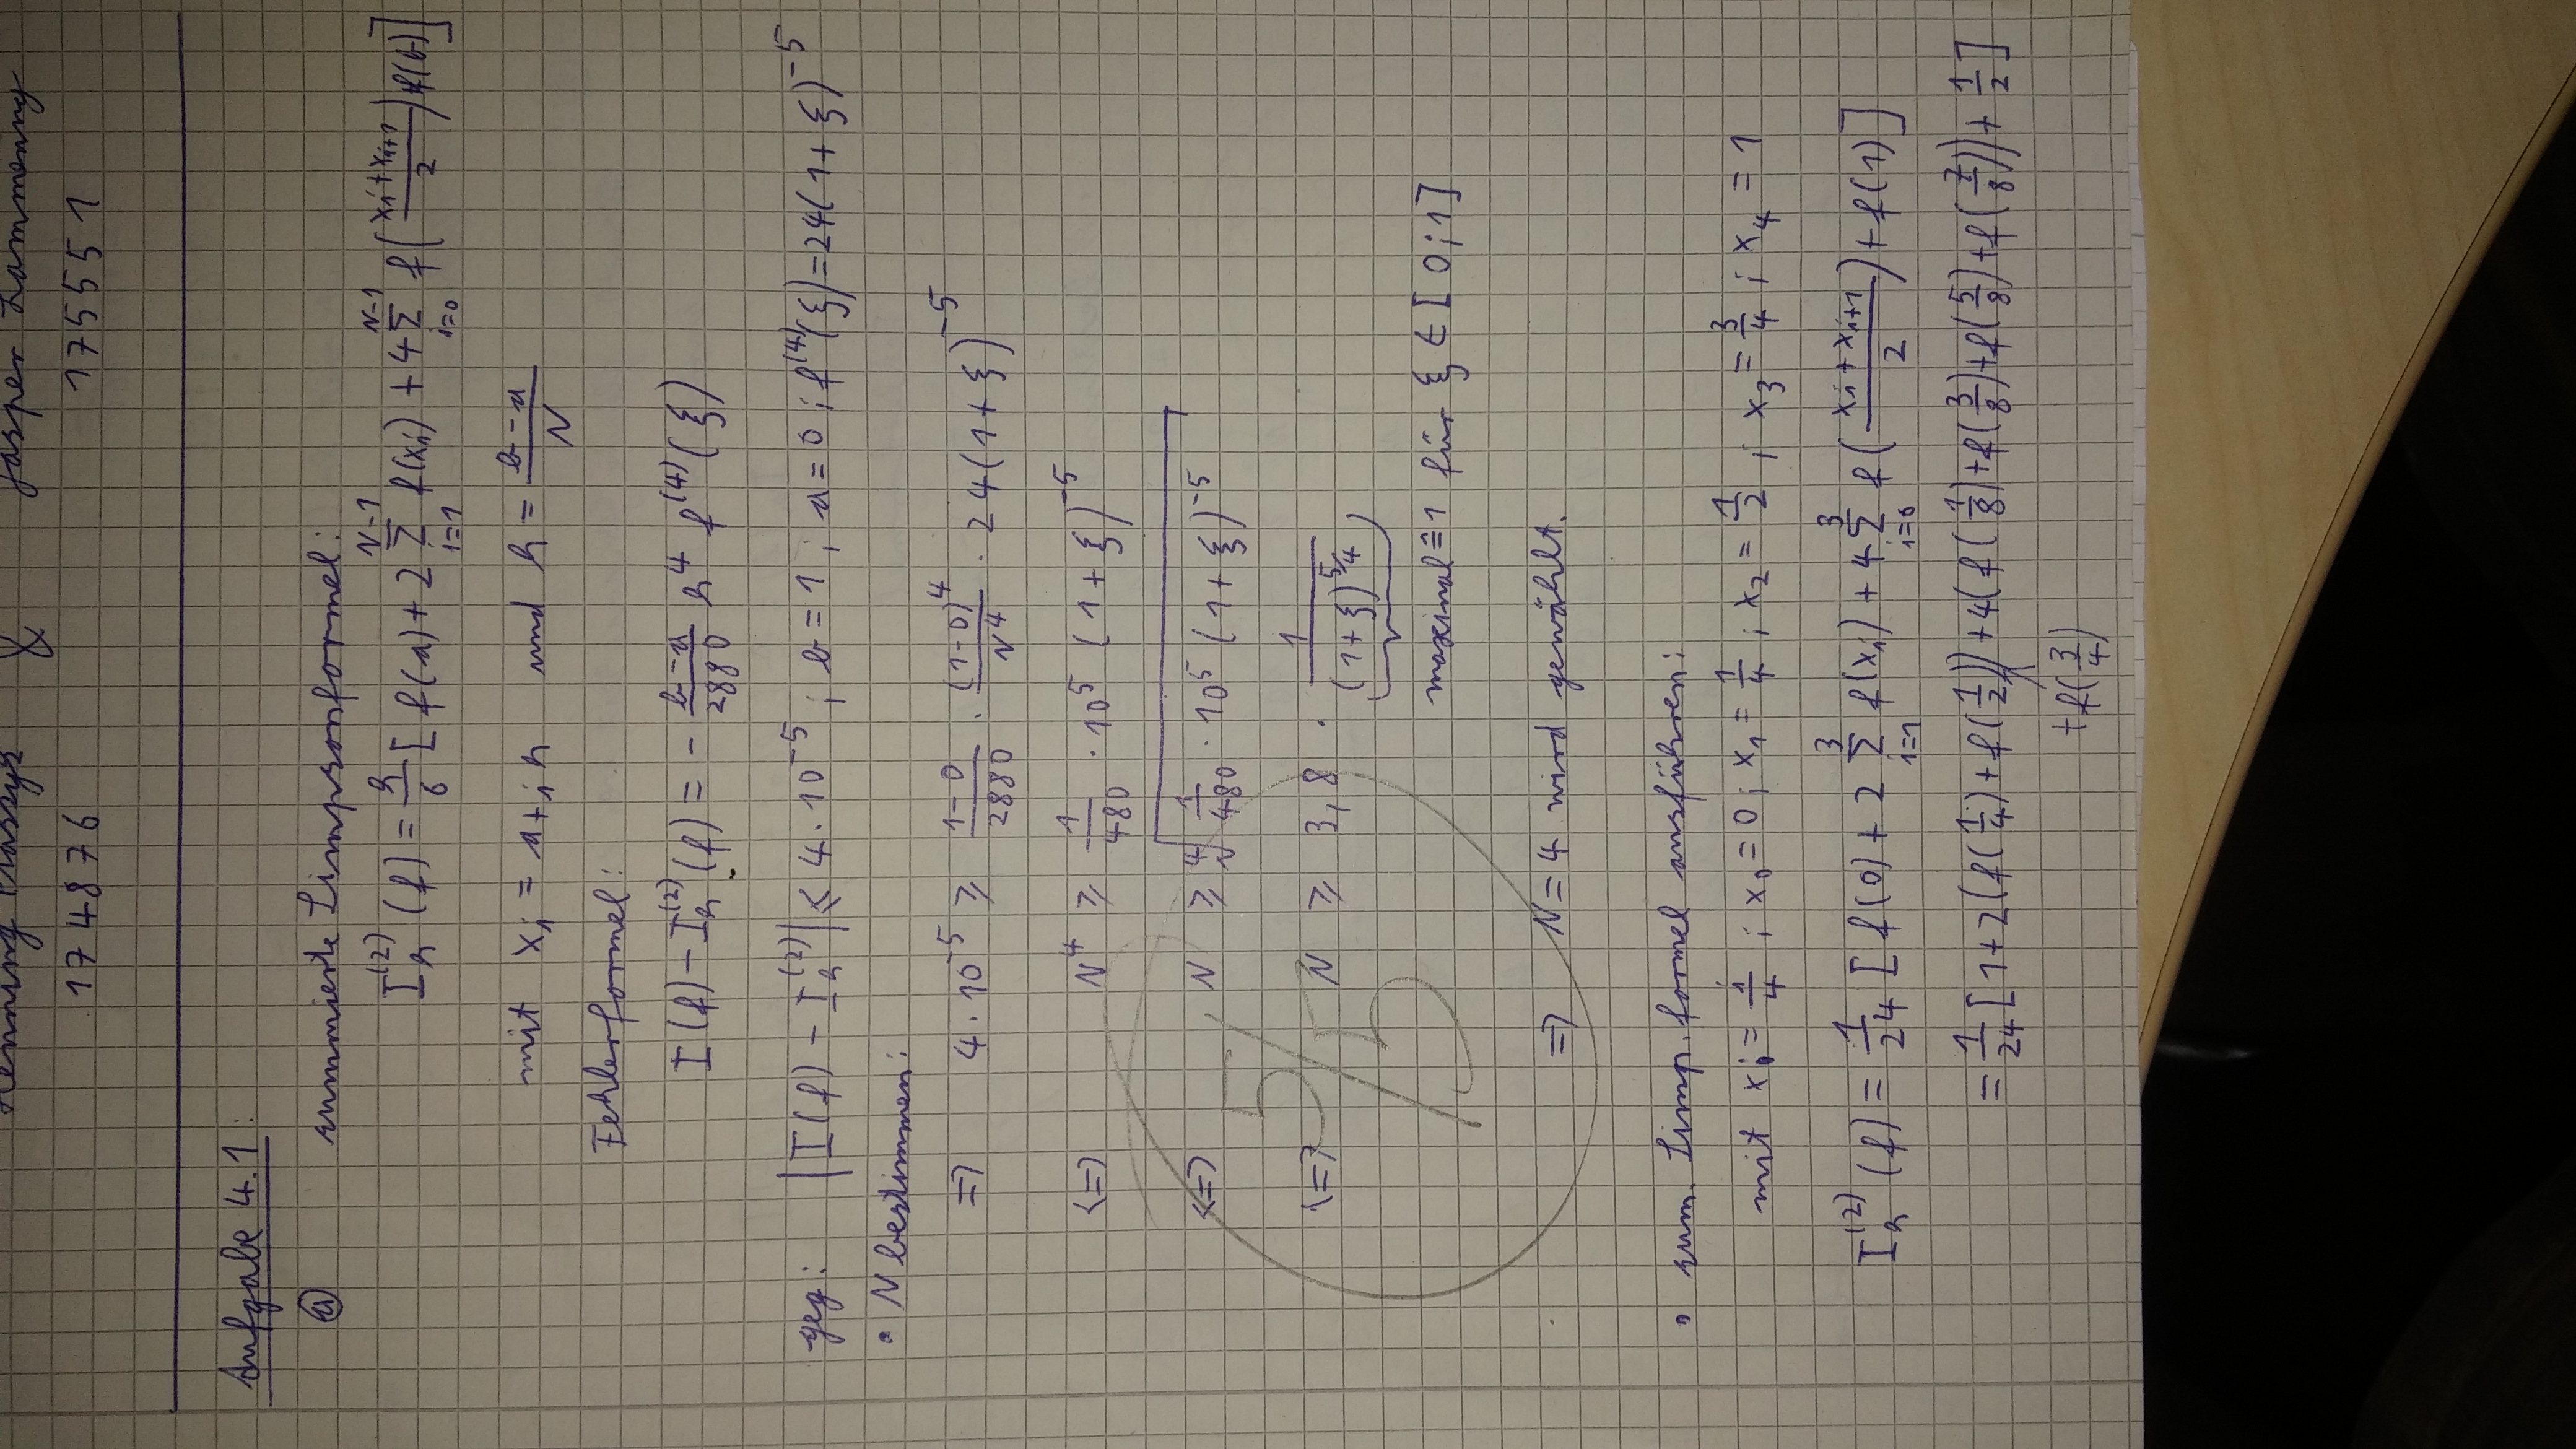 Henning & Jasper
174876 175551
Aufgabe 4.1:
a) summierte Simpsonformel:
I_h^(2) (f) = h/6 [ f(a) + 2 Σ_{i=1}^{N-1} f(x_i) + 4 Σ_{i=0}^{N-1} f((x_i + x_{i+1})/2) + f(b) ]
mit x_i = a + i h und h = (b-a)/N
Fehlerformel:
I(f) - I_h^(2) (f) = - (b-a)/2880 h^4 f^(4) (ξ)
geg: |I(f) - I_h^(2)| ≤ 4 · 10^-5 ; b = 1 ; a = 0 ; f^(4)(ξ) = 24(1+ξ)^-5
• N bestimmen:
=> 4 · 10^-5 ≥ (1-0)/2880 · (1-0)^4/N^4 · 24(1+ξ)^-5
<=> N^4 ≥ 1/480 · 10^5 (1+ξ)^-5
<=> N ≥ ∜(1/480 · 10^5 (1+ξ)^-5)
<=> N ≥ 3,8 · 1/(1+ξ)^(5/4)
5/5
maximal ≙ 1 für ξ ∈ [0;1]
=> N = 4 wird gewählt.
• sum. Simp. formel ausführen:
mit x_i = i/4 ; x_0 = 0 ; x_1 = 1/4 ; x_2 = 1/2 ; x_3 = 3/4 ; x_4 = 1
I_h^(2) (f) = 1/24 [ f(0) + 2 Σ_{i=1}^{3} f(x_i) + 4 Σ_{i=0}^{3} f((x_i + x_{i+1})/2) + f(1) ]
= 1/24 [ 1 + 2(f(1/4) + f(1/2)) + 4(f(1/8) + f(3/8) + f(5/8) + f(7/8)) + 1/2 ]
+ f(3/4)